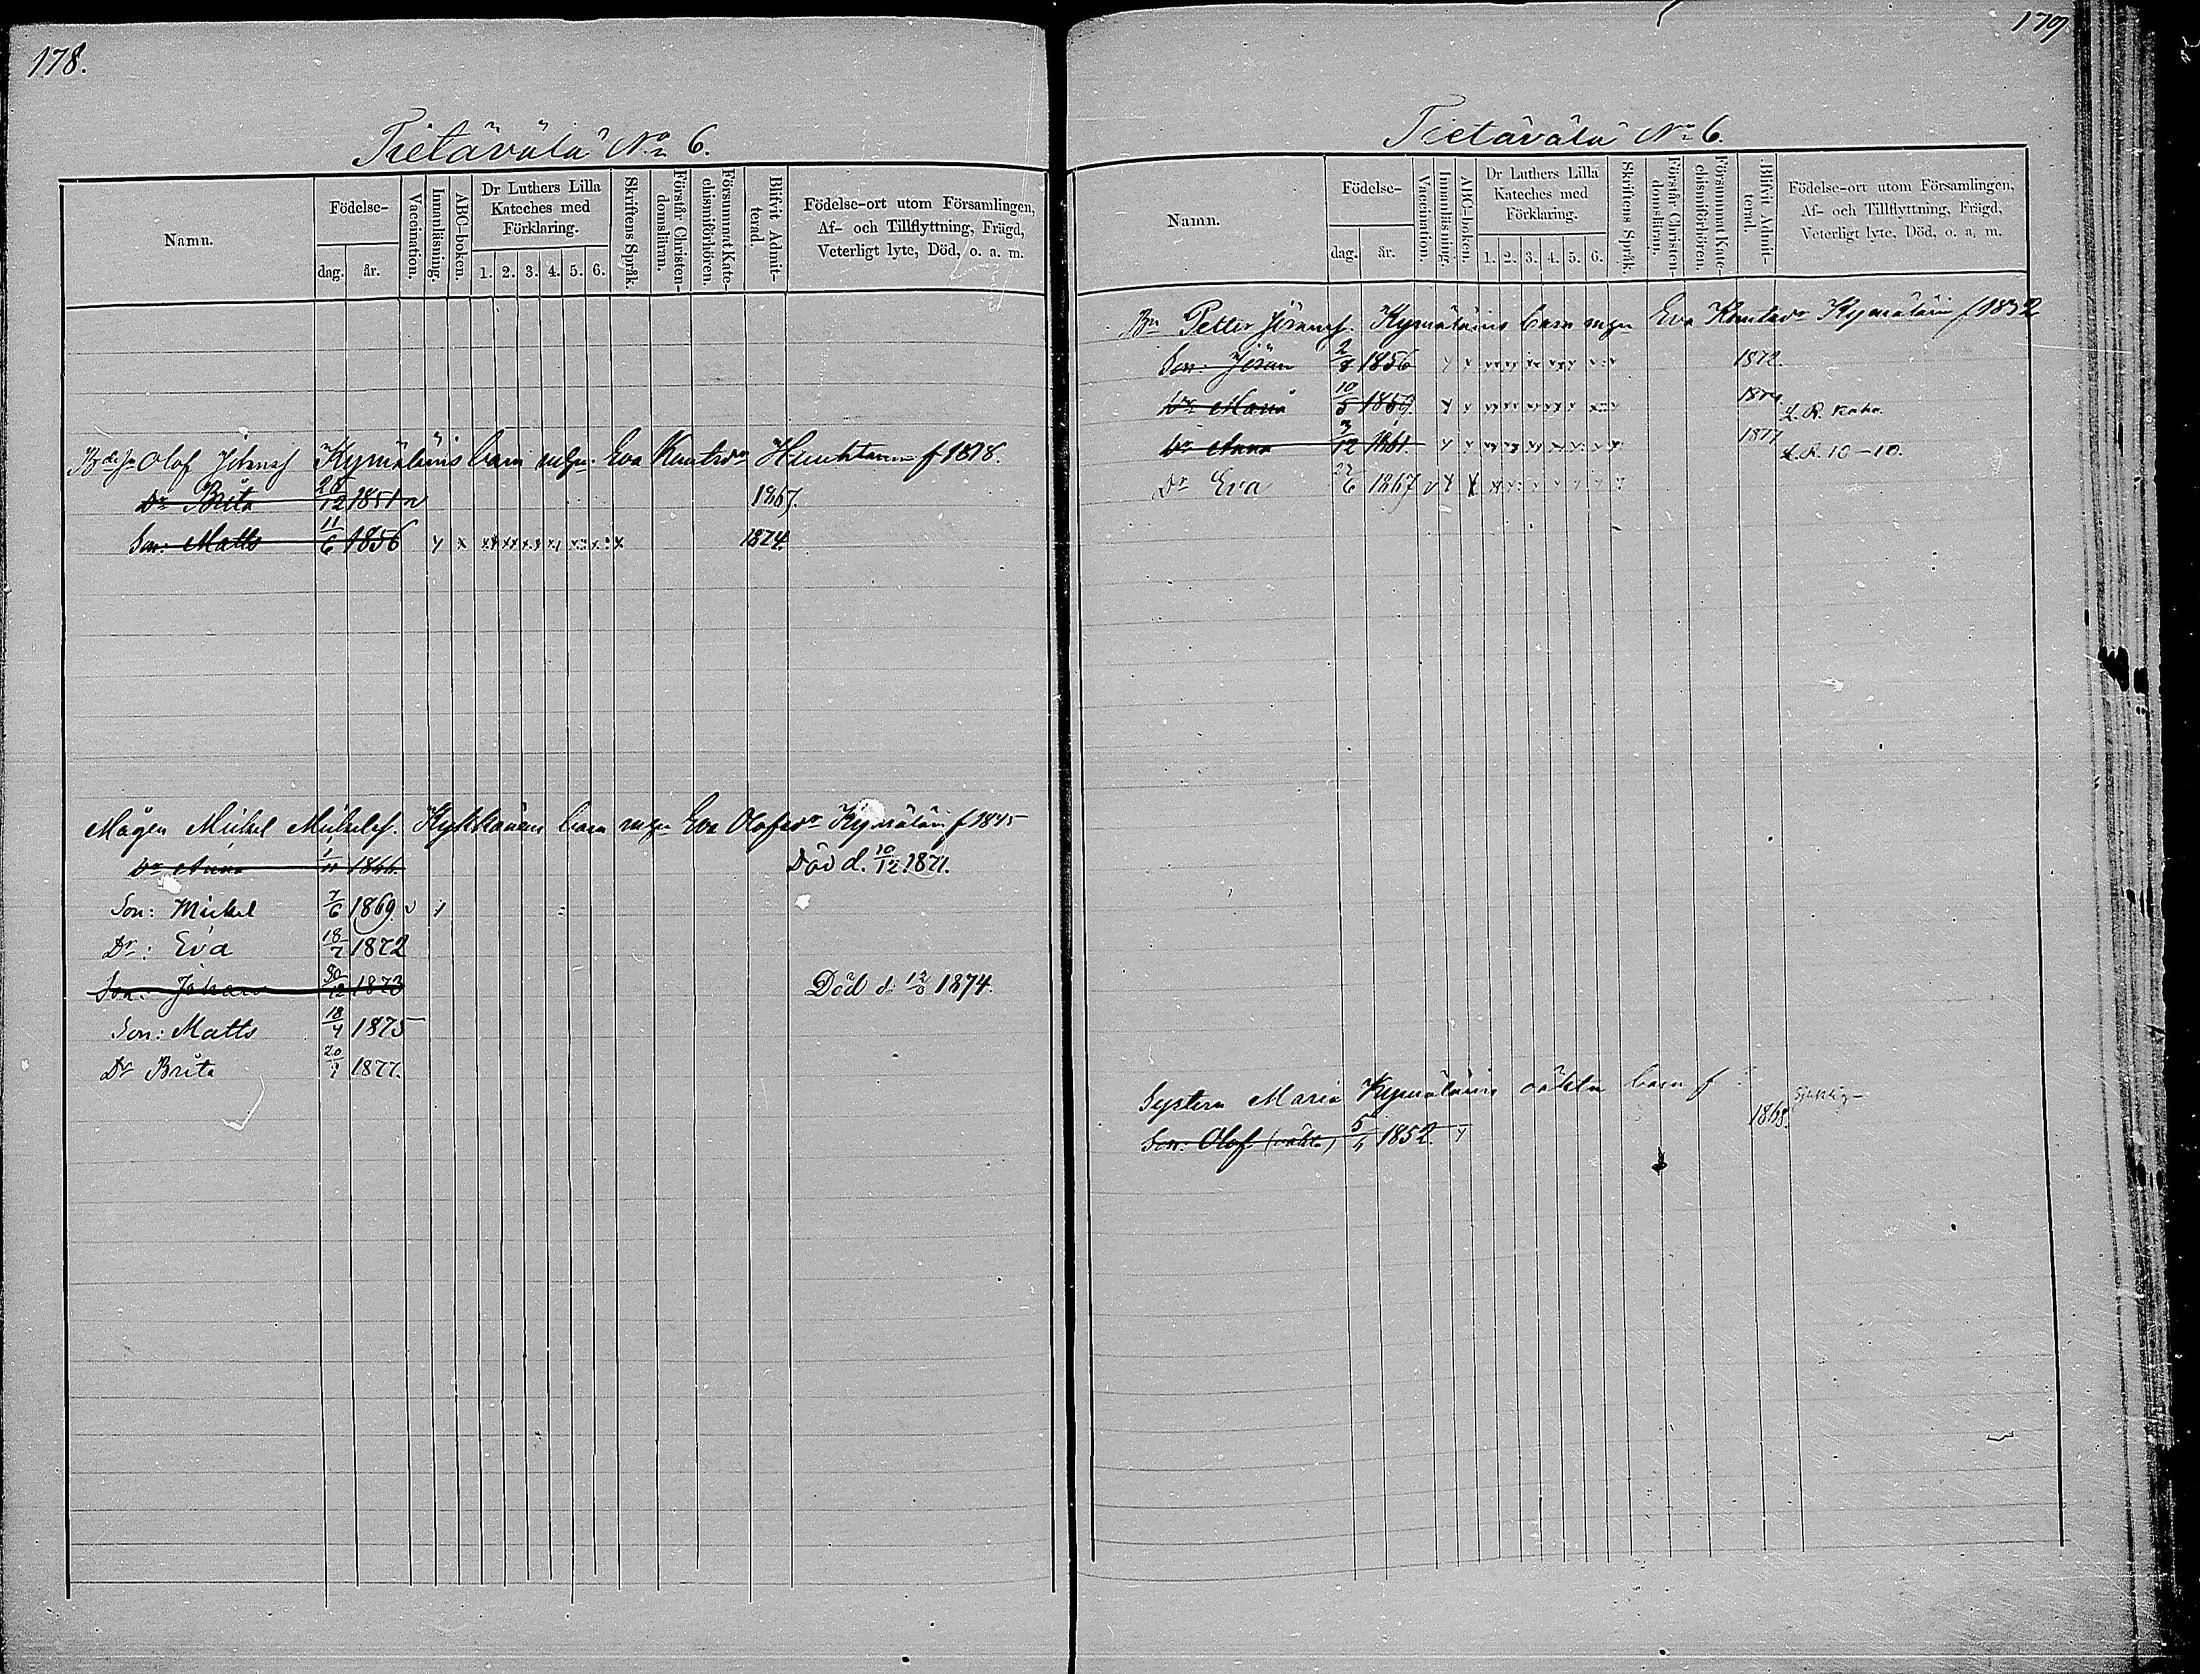 178.
Tietävälä No 6.
Namn.
Födelse-
dag.
år.
Vaccination.
Innanläsning.
ABC-boken.
Dr Luthers Lilla Kateches med Förklaring.
1. 2. 3. 4. 5. 6.
Skriftens Språk.
Förstår Christendomsläran.
Försummat Katechismiförhören.
Blifvit Admitterad.
Födelse-ort utom Församlingen,
Af- och Tillflyttning, Frägd,
Veterligt lyte, Död, o. a. m.
Olof Jöransf Kymäläinis barn Eva f 1818.
Dr Brita 28/12 1851 v 1867.
Son: Matts 11/6 1856 1874.
Mågen Mickel Mickelsf. barn Eva Olofsdr Kymäläin f 1845
Dr Anna 1866 Död d. 10/12 1871.
Son: Mickel 7/6 1869 v
Dr: Eva 18/7 1872
Son: Johan 30/12 1873 Död d. 1874.
Son: Matts 18/4 1875
Dr Brita 20/1 1877.
179
Tietävälä No 6.
Namn.
Födelse-
dag.
år.
Vaccination.
Innanläsning.
ABC-boken.
Dr Luthers Lilla Kateches med Förklaring.
1. 2. 3. 4. 5. 6.
Skriftens Språk.
Förstår Christendomsläran.
Försummat Katechismiförhören.
Blifvit Admitterad.
Födelse-ort utom Församlingen,
Af- och Tillflyttning, Frägd,
Veterligt lyte, Död, o. a. m.
Petter Jöransf. Kymäläinis barn Eva Kymäläin f 1832
Son: Jöran 2/8 1856 1872.
Dr Maria 10/5 1859
Dr Anna 3/12 1861. 1877 L. R. 10-10.
Dr Eva 22/6 1867 v
Systern Maria Kymäläinis oäkta barn f
Son: Olof (oäkta) 5/6 1852. 1868.